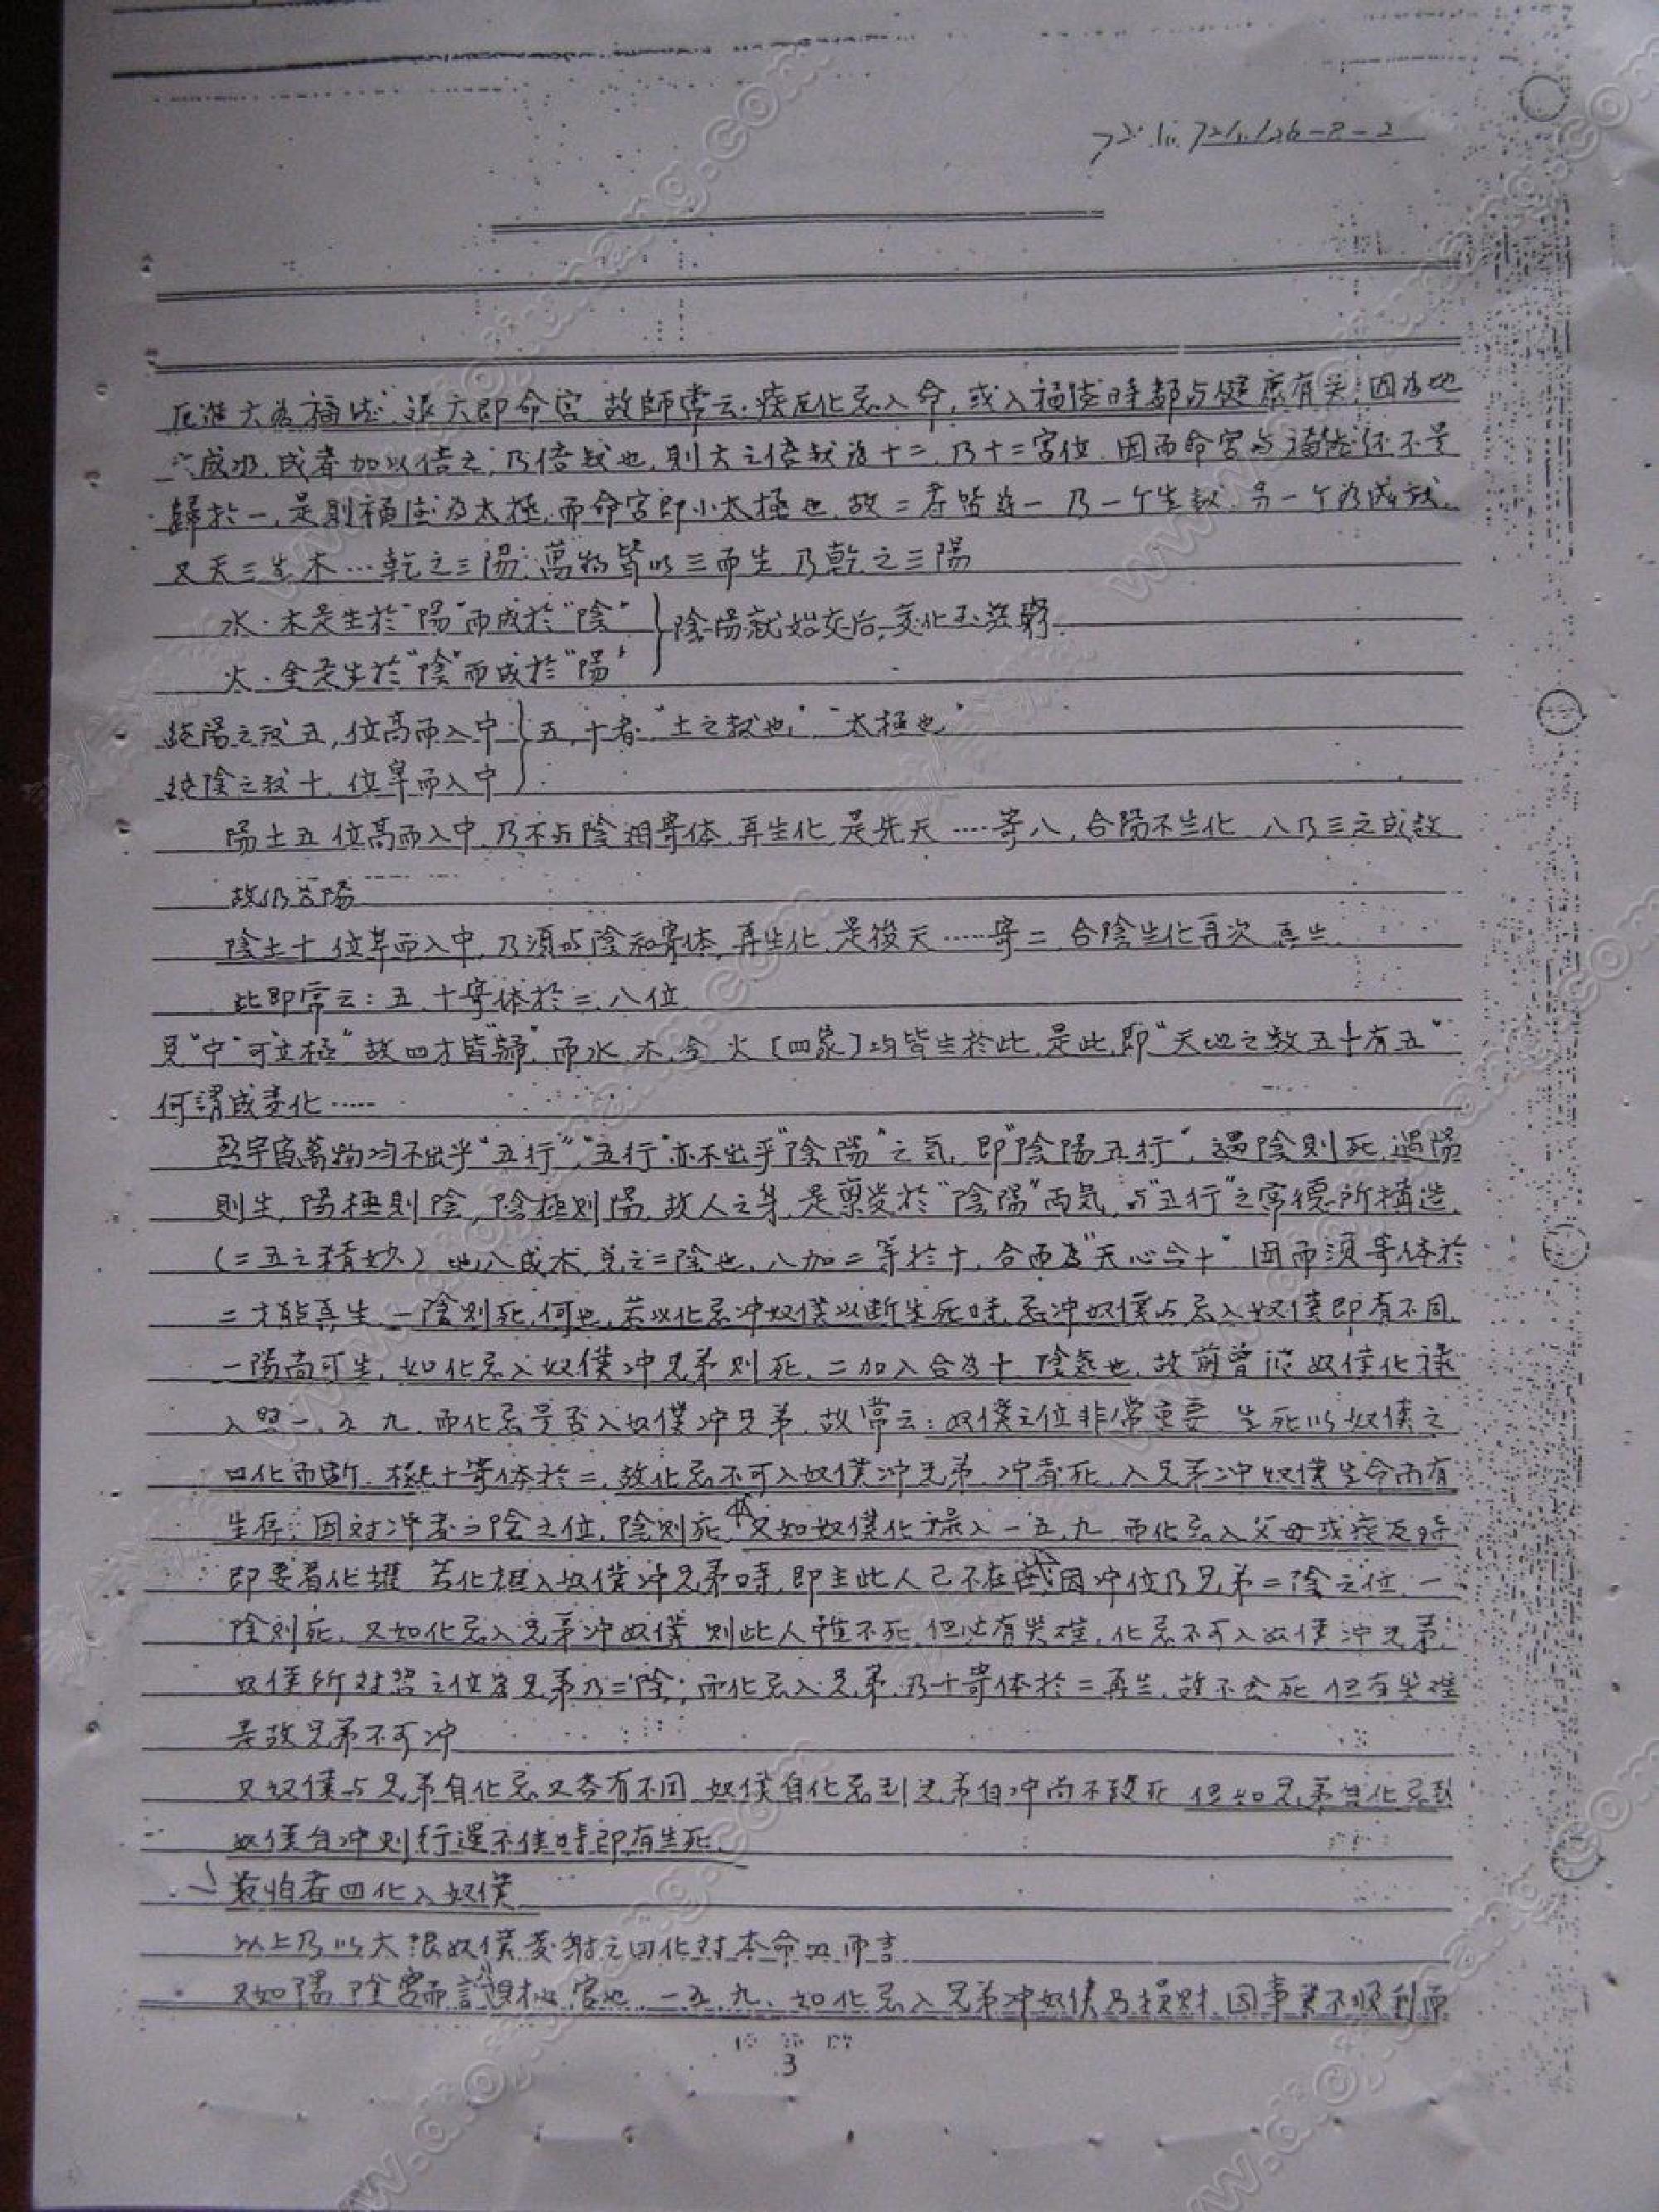 厄進六為福德,退六即命宮,故師常云:疾厄化忌入命,或入福德時都与健康有关,因為地
六成水,成者加以倍之,乃倍数也,則六之倍数為十二,乃十二宮位,因而命宮与福德还不是
歸於一,是則福德為太極,而命宮即小太極也,故二者皆為一 乃一个生数,另一个為成数。
又天三生木…乾之三陽:萬物皆以三而生,乃乾之三陽
水·木是生於"陽"而成於"陰"
陰陽就始交后,变化無窮
火·金是生於"陰"而成於"陽"
純陽之数五,位高而入中
五,十者"土之数也""太極也"
純陰之数十,位卑而入中
陽土五位高而入中,乃不与陰相寄体,再生化,是先天……寄八,合陽不生化 八乃三之成数
故仍為陽
陰土十位卑而入中,乃須与陰和寄体,再生化,是後天……寄二,合陰生化再次再生
此即常云:五.十寄体於二.八位
見"中"可立極"故四才皆"歸",而水.木.金.火〔四象〕均皆生於此,是此,即"天地之数五十有五"
何謂成变化……
盈宇宙萬物均不出乎"五行","五行"亦不出乎"陰陽"之気,即"陰陽五行",遇陰則死,遇陽
則生,陽極則陰,陰極則陽,故人之 是稟受於"陰陽"両気,与"五行"之常德所構造,
(二五之精妙)地八成木,兌之二陰也,八加二等於十,合而為"天心合十"因而須寄体於
二才能再生,一陰則死,何也,若以化忌冲奴僕以断生死時,忌冲奴僕与忌入奴僕即有不同,
一陽尚可生,如化忌入奴僕冲兄弟則死,二加入合為十,陰気也,故前曾說奴僕化祿
入照一.五.九,而化忌是否入奴僕冲兄弟,故常云:奴僕之位非常重要 生死以奴僕之
四化而断, 十寄体於二,故化忌不可入奴僕冲兄弟,冲者死,入兄弟冲奴僕生命尚有
生存:因对冲者為陰之位,陰則死,又如奴僕化祿入一五.九 而化忌入父母或疾厄時
即要看化權 若化权入奴僕冲兄弟時,即主此人已不在 因冲位乃兄弟二陰之位,一
陰則死,又如化忌入兄弟冲奴僕 則此人雖不死,但必有災难,化忌不可入奴僕冲兄弟,
奴僕所对照之位為兄弟乃二陰;而化忌入兄弟,乃十寄体於二再生,故不会死 但有災难
是故兄弟不可冲
又奴僕与兄弟自化忌又各有不同,奴僕自化忌到兄弟自冲尚不致死 但如兄弟自化忌到
奴僕自冲則行運不佳時即有生死.
最怕者四化入奴僕
以上乃以大限奴僕发射之四化对本命 而言
又如陽 陰宮而 宮也 一五.九、如化忌入兄弟冲奴僕乃損財,因事業不順利而
3